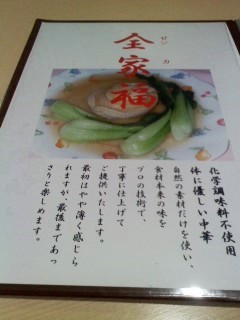 全家福
ゼンカ
化学調味料不使用
体に優しい中華
自然の素材だけを使い、
食材本来の味を
プロの技術で、
丁寧に仕上げて
ご提供いたします。
最初はやや薄く感じら
れますが、最後まであっ
さりと楽しめます。